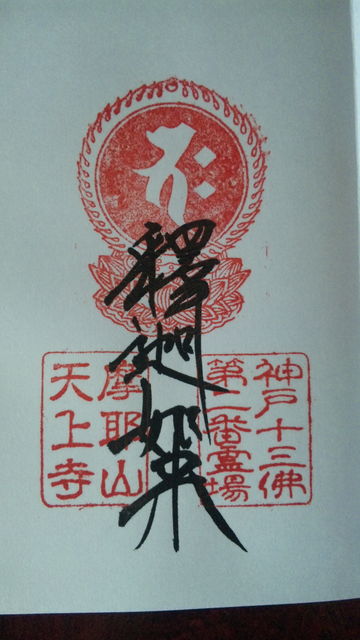 釋迦如来
神戸十三佛
第二番霊場
摩耶山
天上寺